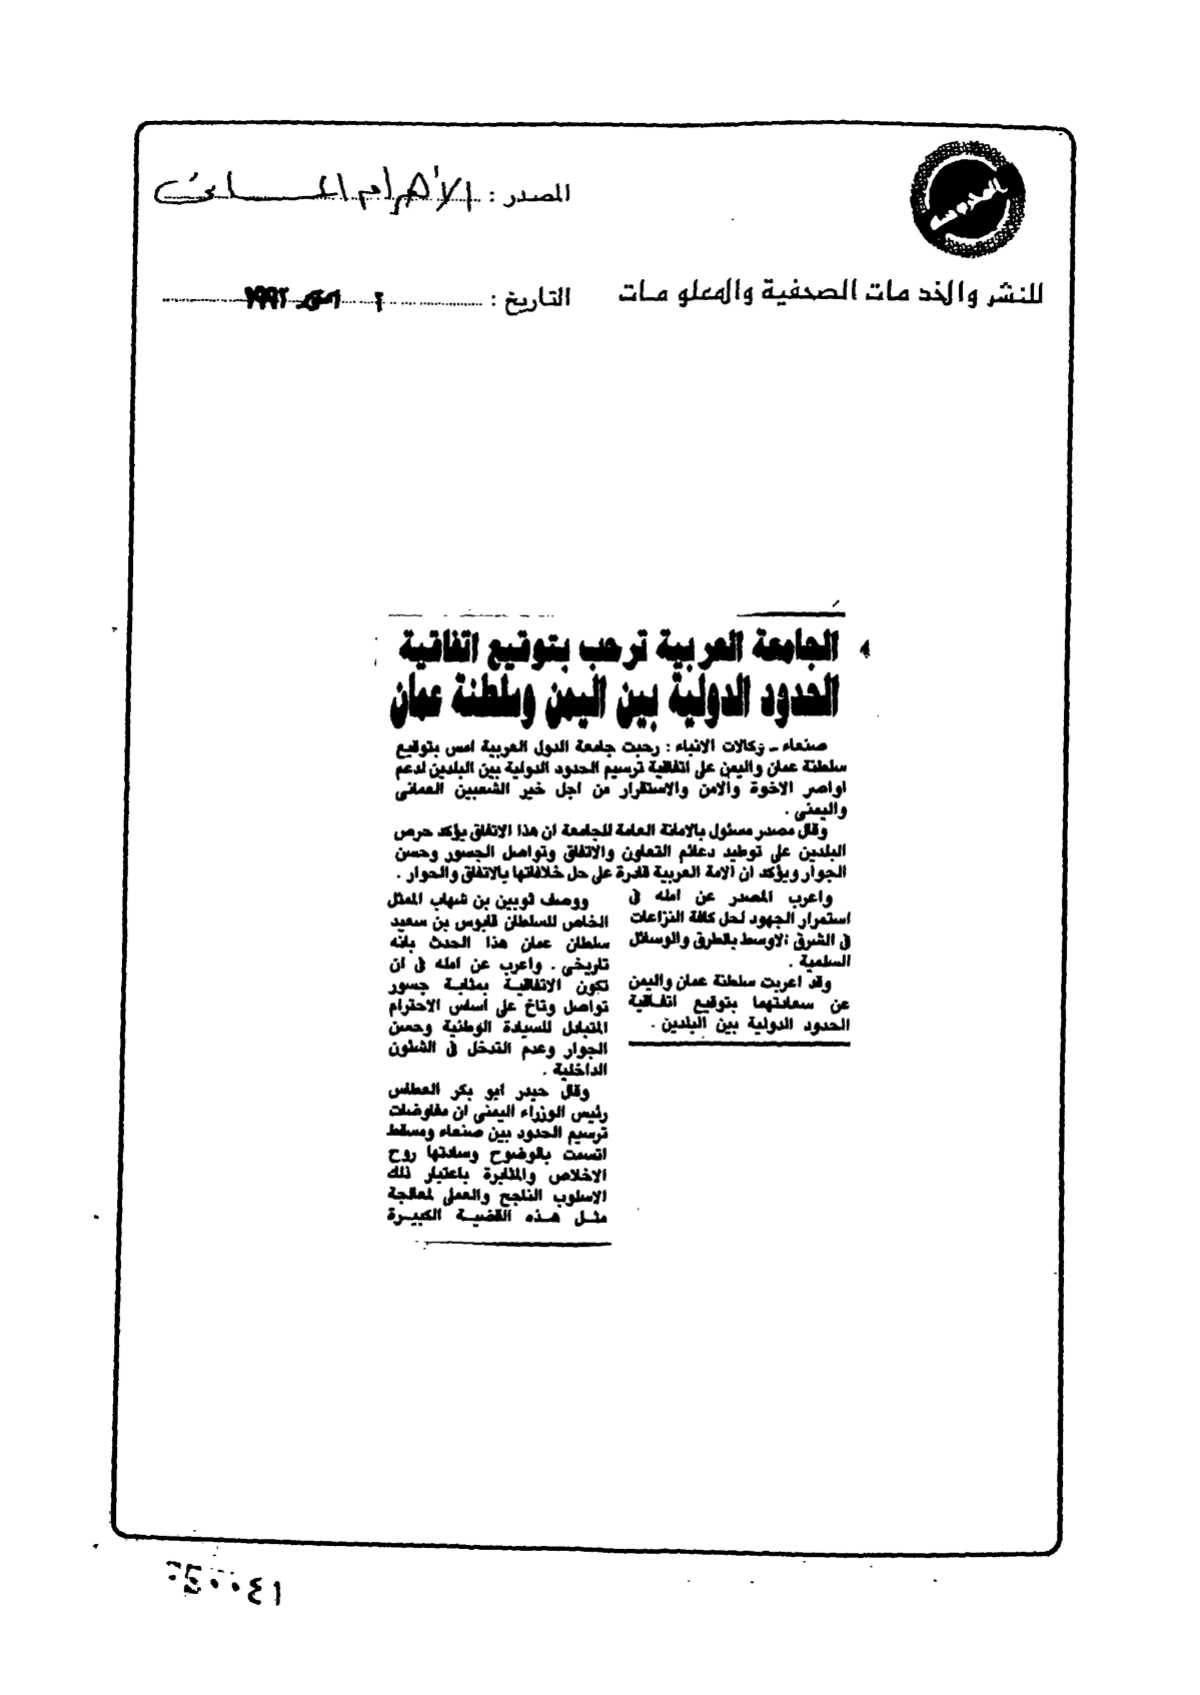 المصدر : الأهرام المسائى
للنشر والخدمات الصحفية والمعلومات
التاريخ : ٢ ١٩٩٢
الجامعة العربية ترحب بتوقيع اتفاقية
الحدود الدولية بين اليمن وسلطنة عمان
صنعاء ـ وكالات الانباء : رحبت جامعة الدول العربية امس بتوقيع
سلطنة عمان واليمن على اتفاقية ترسيم الحدود الدولية بين البلدين لدعم
اواصر الاخوة والامن والاستقرار من اجل خير الشعبين العمانى
واليمنى .
وقال مصدر مسئول بالامانة العامة للجامعة ان هذا الاتفاق يؤكد حرص
البلدين على توطيد دعائم التعاون والاتفاق وتواصل الجسور وحسن
الجوار ويؤكد ان الامة العربية قادرة على حل خلافاتها بالاتفاق والحوار .
واعرب المصدر عن امله فى
استمرار الجهود لحل كافة النزاعات
فى الشرق الاوسط بالطرق والوسائل
السلمية .
وقد اعربت سلطنة عمان واليمن
عن سعادتهما بتوقيع اتفاقية
الحدود الدولية بين البلدين .
ووصف ثوينى بن شهاب الممثل
الخاص للسلطان قابوس بن سعيد
سلطان عمان هذا الحدث بانه
تاريخى . واعرب عن امله فى ان
تكون الاتفاقية بمثابة جسور
تواصل وتاخ على اساس الاحترام
المتبادل للسيادة الوطنية وحسن
الجوار وعدم التدخل فى الشئون
الداخلية .
وقال حيدر ابو بكر العطاس
رئيس الوزراء اليمنى ان مفاوضات
ترسيم الحدود بين صنعاء ومسقط
اتسمت بالوضوح وسادتها روح
الاخلاص والمثابرة باعتبار ذلك
الاسلوب الناجح والعملى لمعالجة
مثل هذه القضية الكبيرة